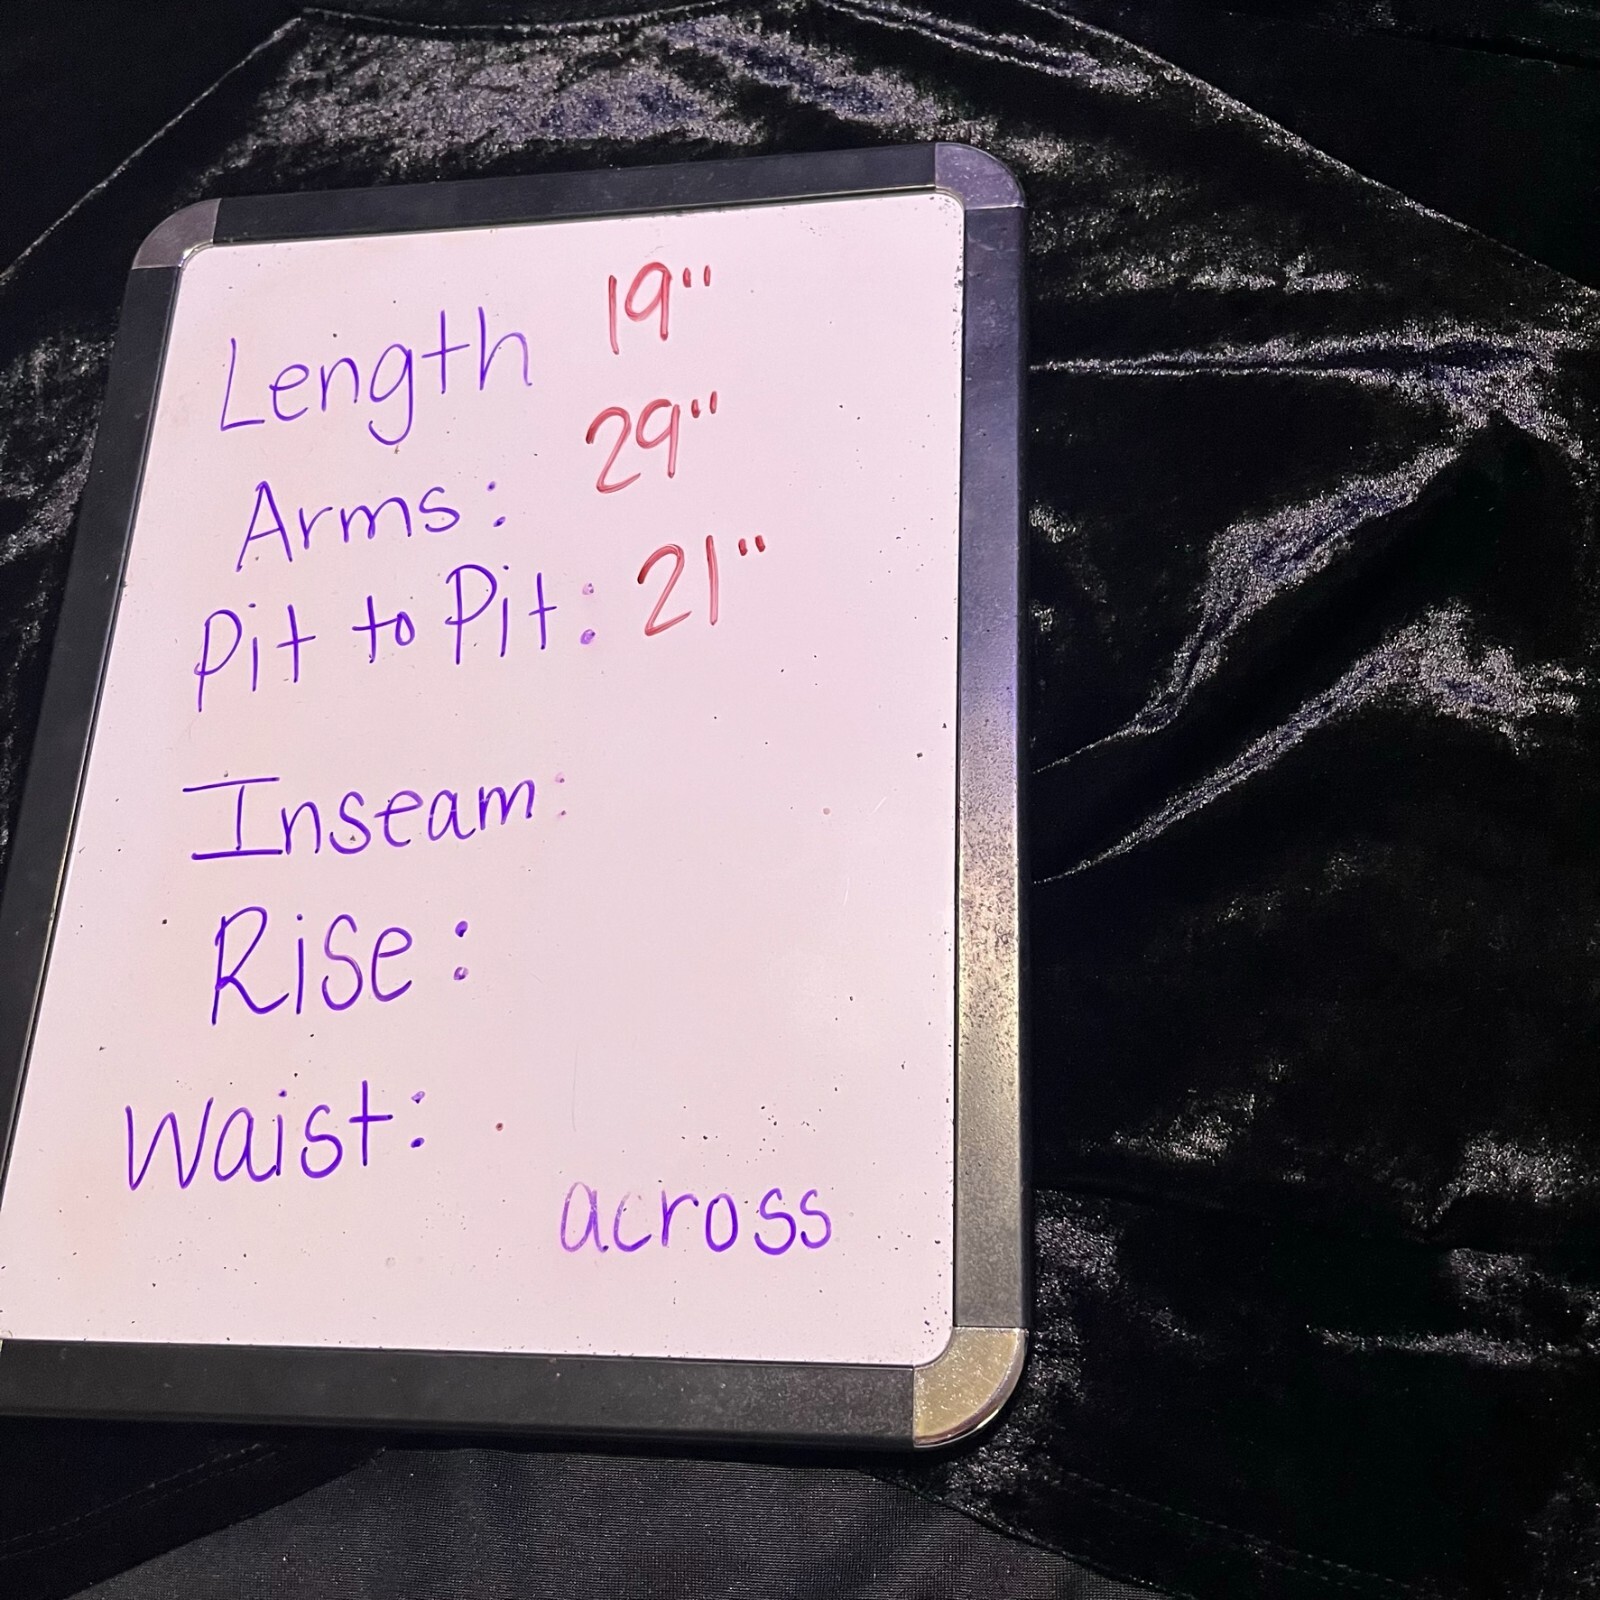 Length 19"
Arms: 29"
Pit to Pit: 21"
Inseam:
Rise:
Waist:
across